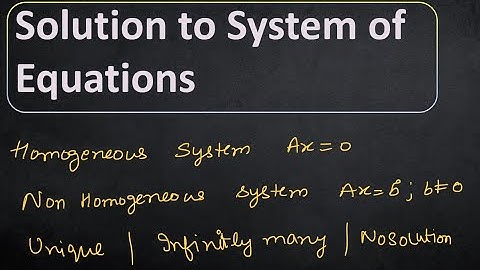 Solution to System of
Equations
Homogeneous System Ax=0
Non Homogeneous System Ax=b; b≠0
Unique | Infinitly many | No solution